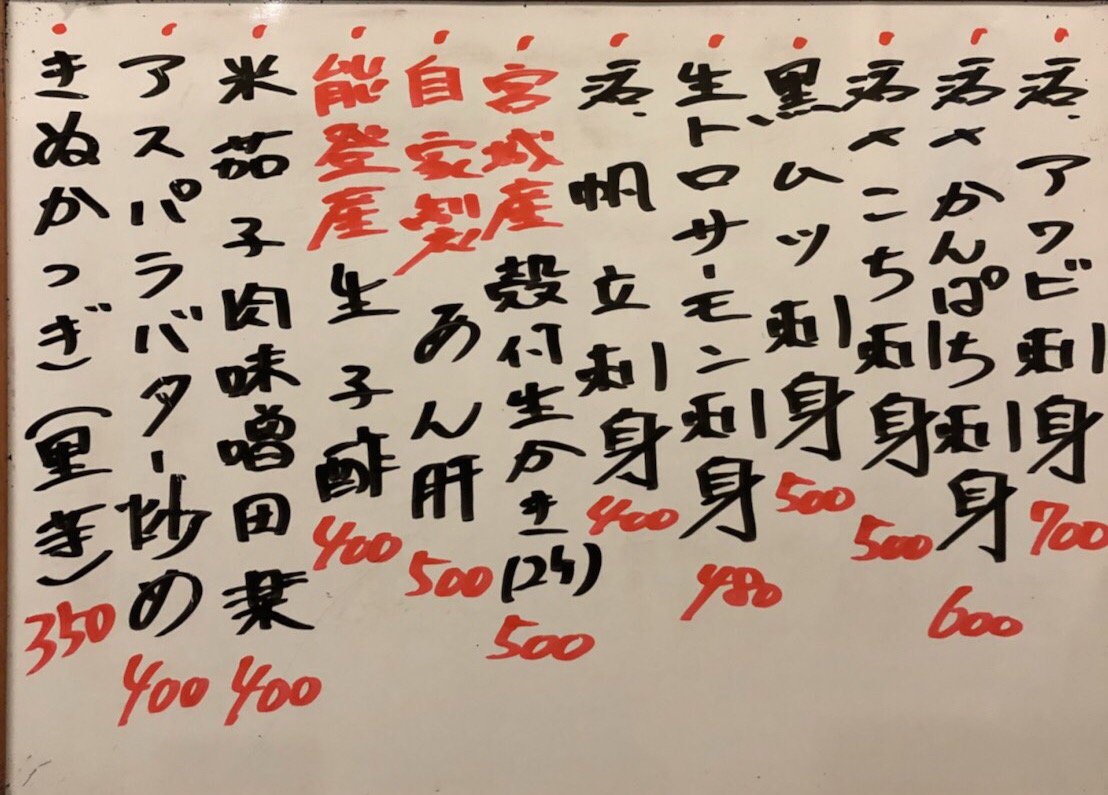 活アワビ刺身 700
活〆かんぱち刺身 600
活〆こち刺身 500
黒ムツ刺身 500
生トロサーモン刺身 480
活帆立刺身 400
宮城産殻付生かき(2ケ) 500
自家製あん肝 500
能登産生子酢 400
米茄子肉味噌田楽 400
アスパラバター炒め 400
きぬかつぎ(里芋) 350